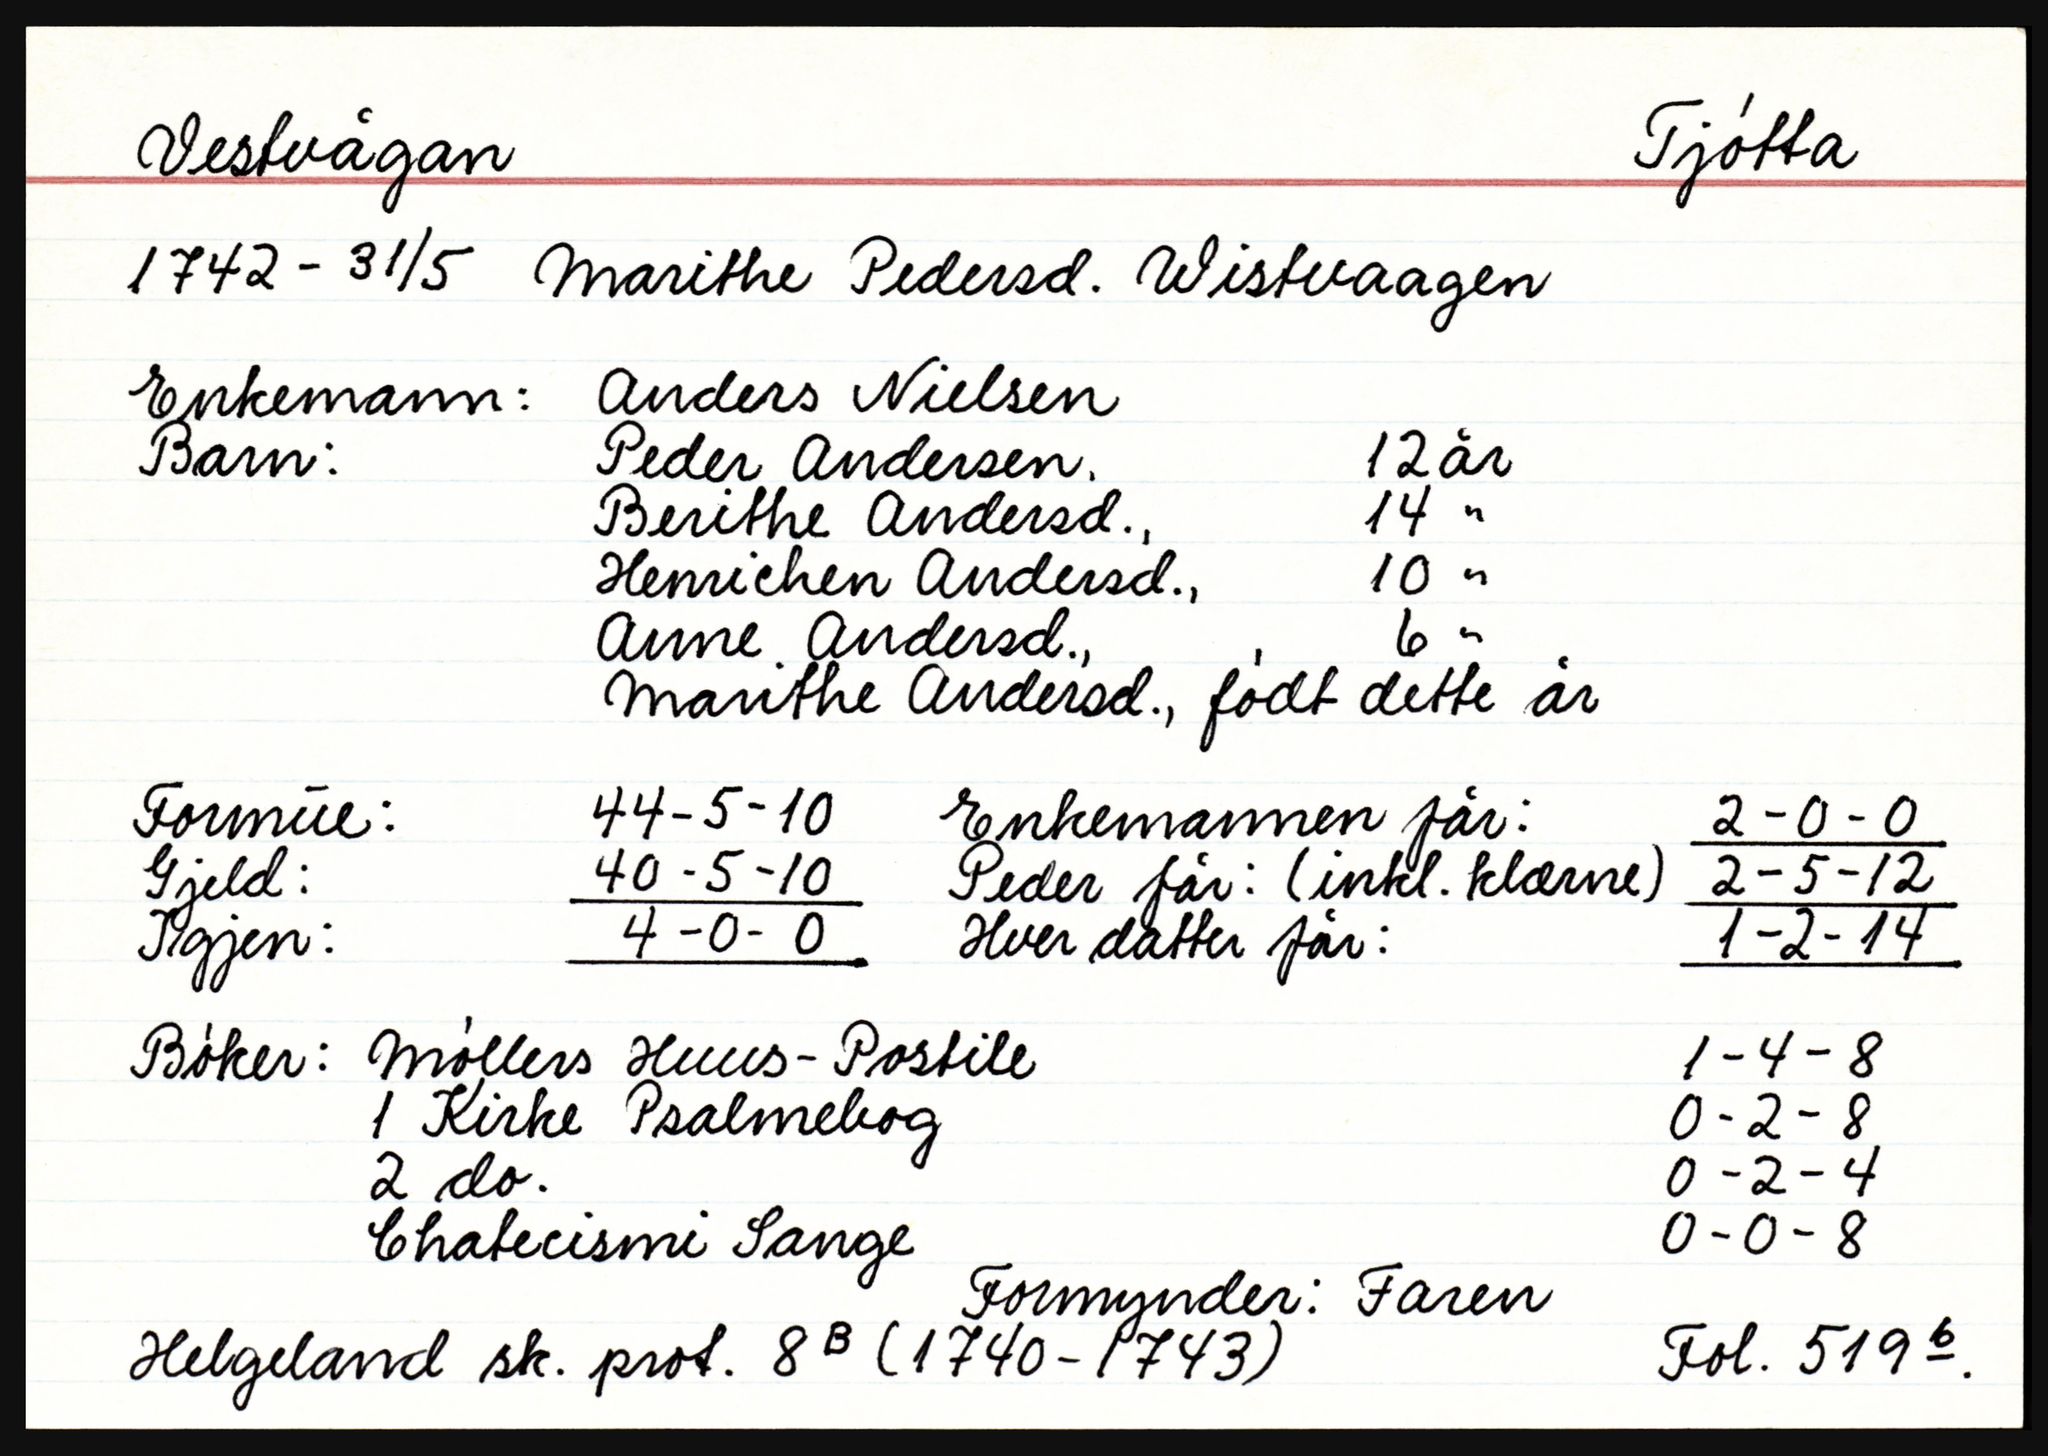 Vestvågan Tjøtta
1742 - 31/5 Marithe Pedersd. Wistvaagen
Enkemann: Anders Nielsen
Barn: Peder Andersen, 12 år
Berithe Andersd., 14 "
Henrichen Andersd., 10 "
Anne Andersd., 6 "
Marithe Andersd., født dette år
Formue: 44-5-10 Enkemannen får: 2-0-0
Gjeld: 40-5-10 Peder får: (inkl. klærne) 2-5-12
Igjen: 4-0-0 Hver datter får: 1-2-14
Bøker: Møllers Huus-Postile 1-4-8
1 Kirke Psalmebog 0-2-8
2 do. 0-2-4
Chatecismi Sange 0-0-8
Formynder: Faren
Helgeland sk. prot. 8 B (1740-1743) Fol. 519 b.